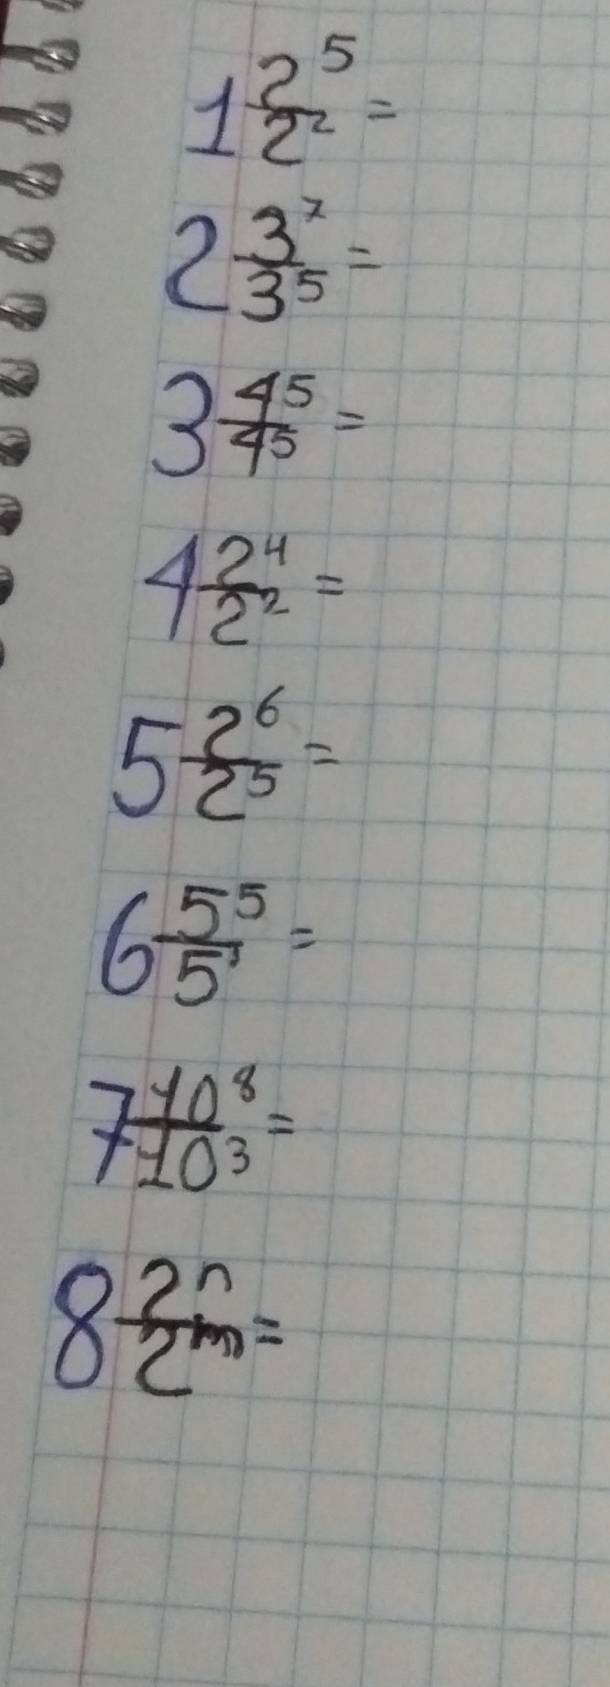 1 2^5/2^2 =
2 3^7/3^5 =
3 4^5/4^5 =
4 2^4/2^2 =
5 2^6/2^5 =
6 5^5/5 =
7 10^8/10^3 =
8 2^n/2^m =